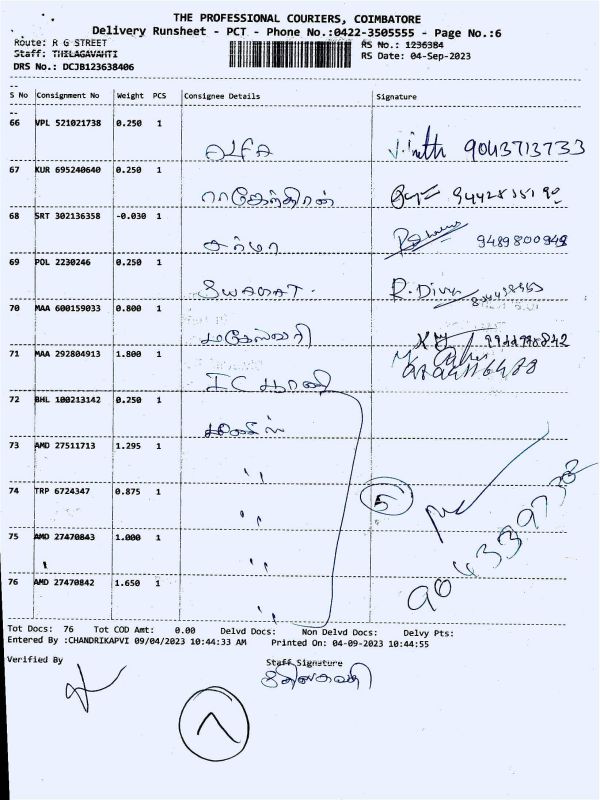 THE PROFESSIONAL COURIERS, COIMBATORE
Delivery Runsheet - PCT - Phone No.:0422-3505555 - Page No.:6
Route: R G STREET RS No.: 1236384
Staff: THILAGAVAHTI RS Date: 04-Sep-2023
DRS No.: DCJB123638406
--
S No Consignment No Weight PCS Consignee Details Signature
--
66 VPL 521021738 0.250 1
ALFA 9043713733
67 KUR 695240640 0.250 1
68 SRT 302136358 -0.030 1
சர்மா 9489800949
69 POL 2230246 0.250 1
SWAGAT. R. Divya
70 MAA 600159033 0.800 1
மகேஸ்வரி
71 MAA 292804913 1.800 1
72 BHL 100213142 0.250 1
73 AMD 27511713 1.295 1
"
74 TRP 6724347 0.875 1
" 5
75 AMD 27470843 1.000 1
"
76 AMD 27470842 1.650 1
"
Tot Docs: 76 Tot COD Amt: 0.00 Delvd Docs: Non Delvd Docs: Delvy Pts:
Entered By :CHANDRIKAPVI 09/04/2023 10:44:33 AM Printed On: 04-09-2023 10:44:55
Verified By Staff Signature
திலகவதி